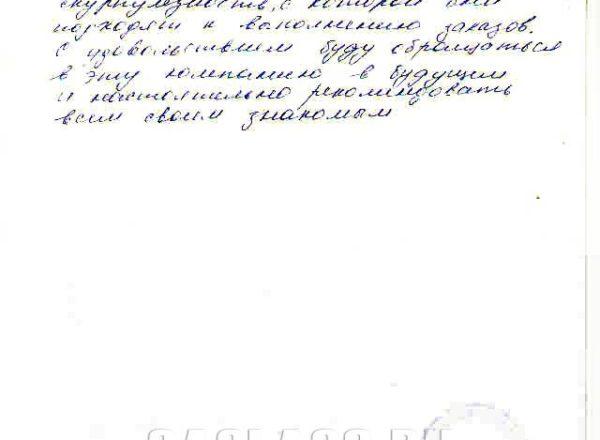 скурпулезность, с которой они
подходят к выполнению заказов.
С удовольствием буду обращаться
в эту компанию в будущем
и настоятельно рекомендовать
всем своим знакомым